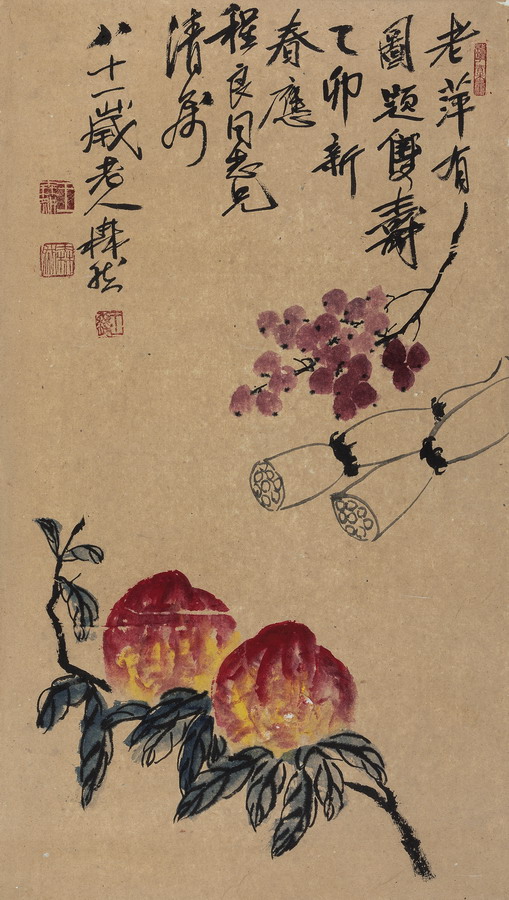 老萍有
圖題雙壽
乙卯新
春應
程良同志兄
清
八十一歲老人